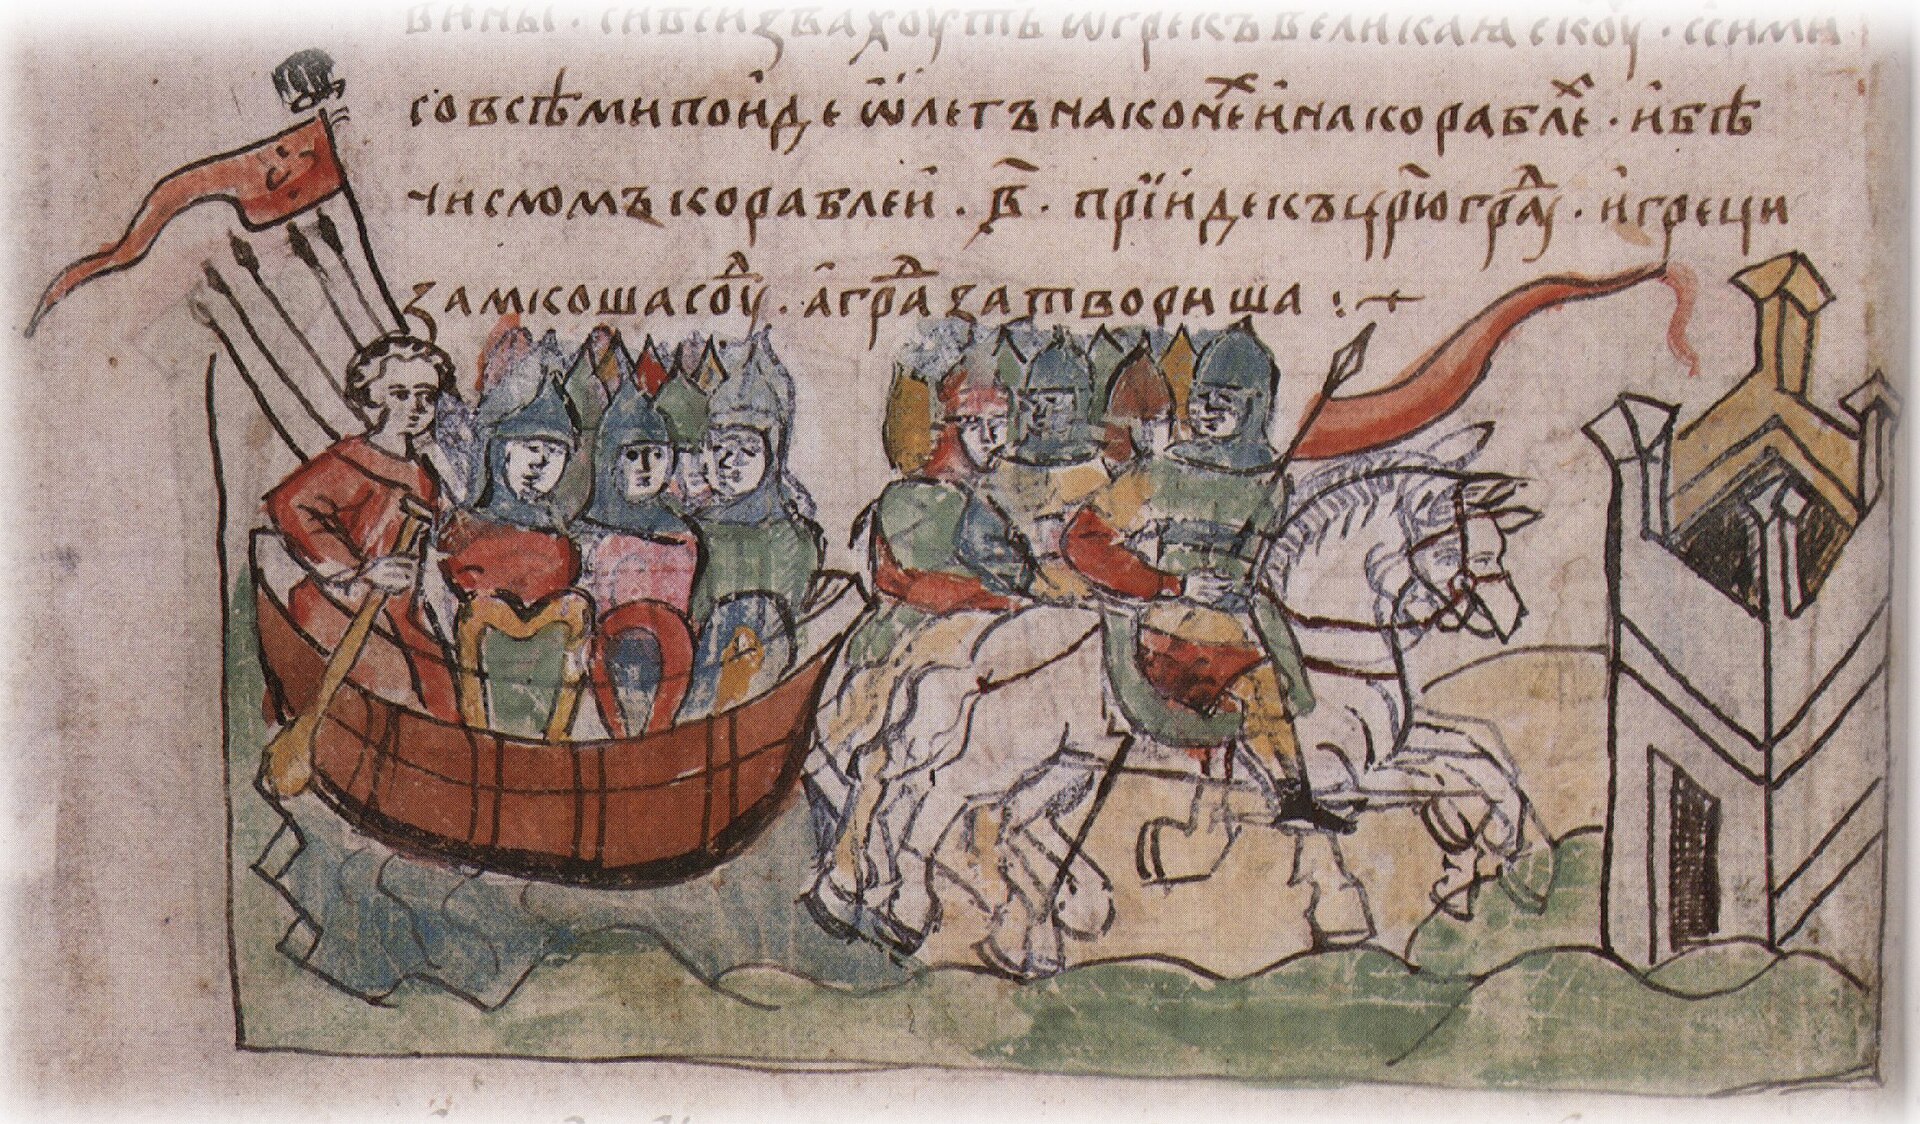 вины · сивсизвахоуть ѿгрекъвеликаꙗскоуӱ · ссими
совсѣмипоиде ѡ҆легънаконеⷯ инакораблеⷯ · ибѣ
числомъкораблеи · в҃ · прїидекъцр҃югра́ⷣ · игреци
замкошасоуⷣ · аграⷣзатвориша :~